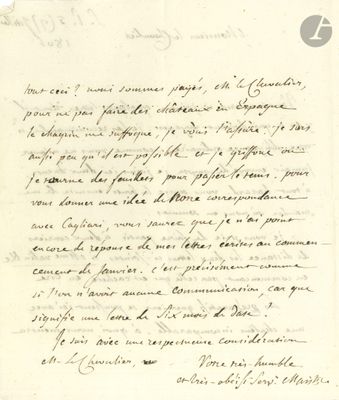 Monsieur le Chevalier
1806
tout ceci? nous sommes payés, M. le Chevalier,
pour ne pas faire des châteaux en Espagne
le chagrin me suffoque, je vous l'assure. je sors
aussi peu qu'il est possible et je griffone ou
je tourne des feuillets pour passer le tems. pour
vous donner une idée de notre correspondance
avec Cagliari, vous saurez que je n'ai point
encore de reponse de mes lettres écrites au commen-
cement de Janvier. c'est précisément comme
si l'on n'avoit aucune communication, car que
signifie une lettre de six mois de date?
Je suis avec une respectueuse considération
M. le Chevalier,
Votre très-humble
et très-obéiss. serv. Maistre